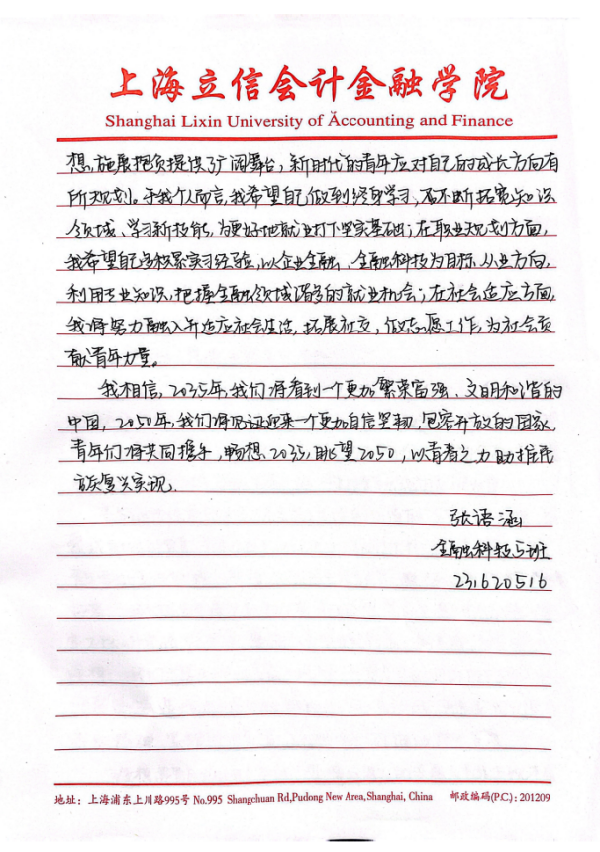 上海立信会计金融学院
Shanghai Lixin University of Accounting and Finance
想,施展抱负提供了广阔舞台,新时代的青年应对自己的成长方向有
所规划。于我个人而言,我希望自己做到终身学习,不断拓宽知识
领域、学习新技能,为更好地就业打下坚实基础;在职业规划方面,
我希望自己多积累实习经验,以企业金融、金融科技为目标从业方向,
利用专业知识,把握金融领域诸多的就业机会;在社会适应方面,
我将努力融入并适应社会生活,拓展社交,做志愿工作,为社会贡
献青年力量。
我相信,2035年,我们将看到一个更加繁荣富强、文明和谐的
中国,2050年,我们将见证迎来一个更加自信坚韧,包容开放的国家。
青年们将共同携手,畅想2035,眺望2050,以青春之力助推民
族复兴实现.
张语涵
金融科技5班
231620516
地址:上海浦东上川路995号 No.995 Shangchuan Rd,Pudong New Area,Shanghai, China 邮政编码(P.C.): 201209